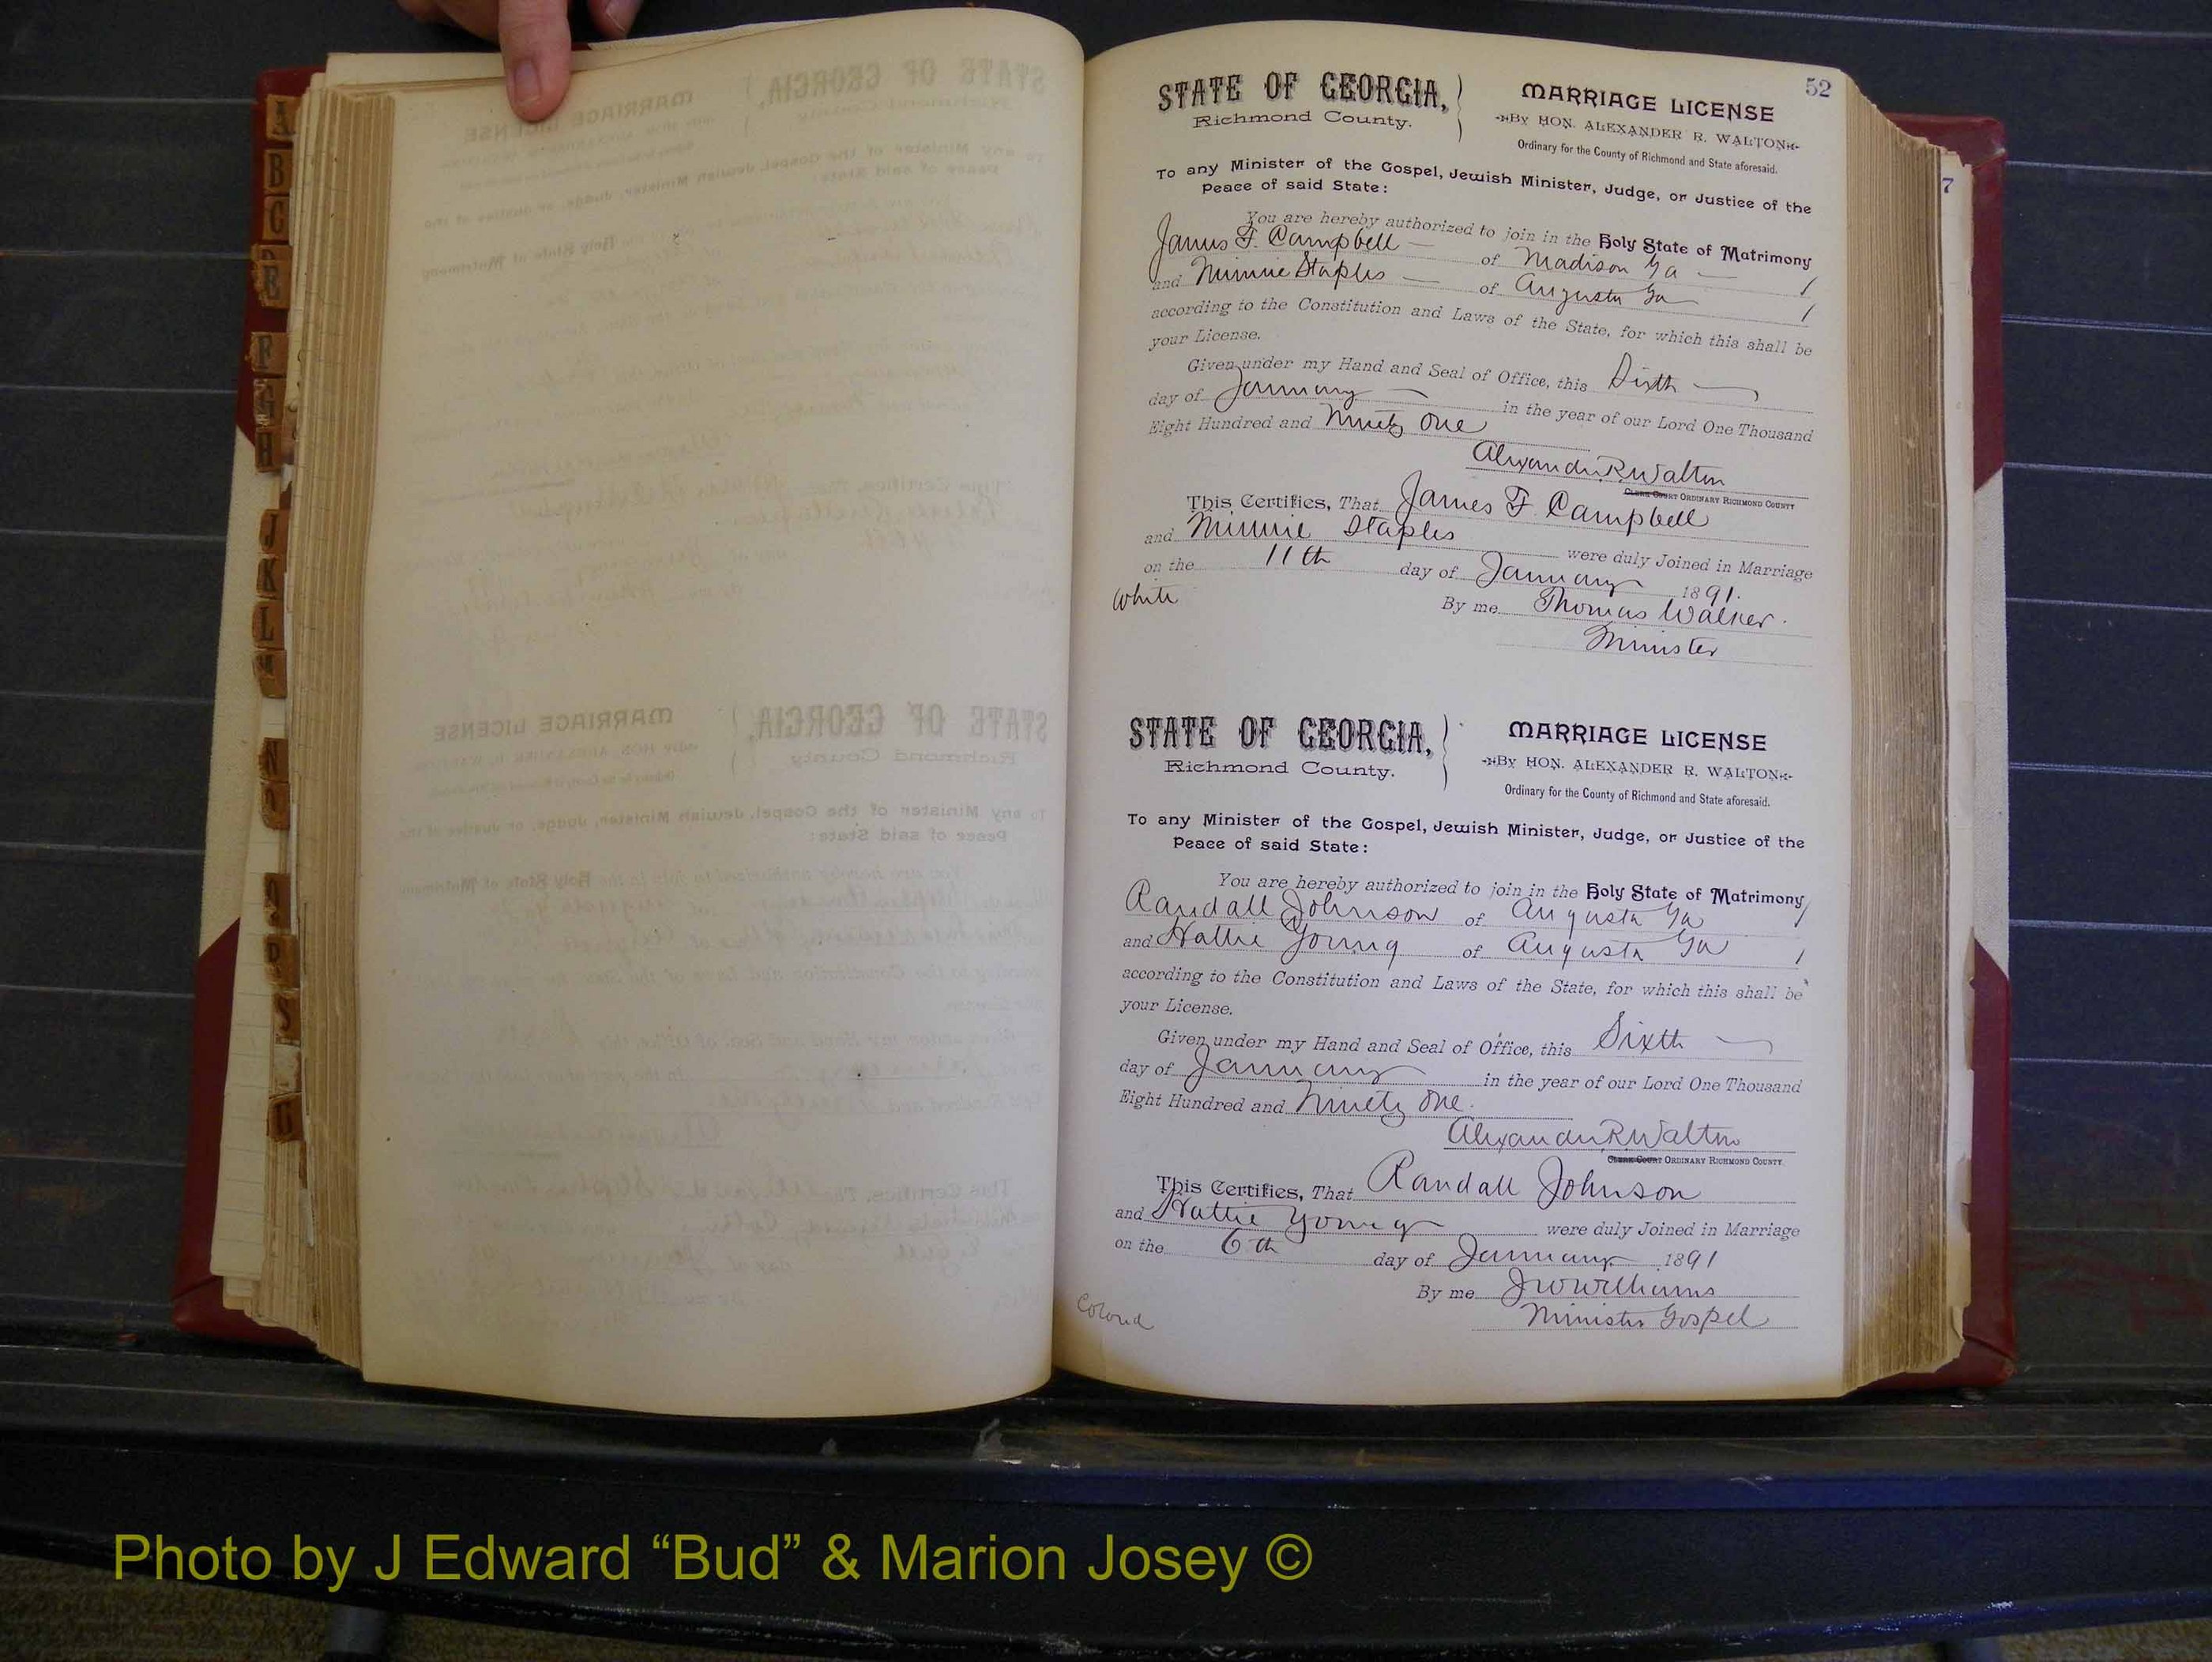 52
STATE OF GEORGIA,
Richmond County.
MARRIAGE LICENSE
By HON. ALEXANDER R. WALTON
Ordinary for the County of Richmond and State aforesaid.
To any Minister of the Gospel, Jewish Minister, Judge, or Justice of the
Peace of said State:
You are hereby authorized to join in the Holy State of Matrimony
James F. Campbell of Madison Ga
and Minnie Staples of Augusta Ga
according to the Constitution and Laws of the State, for which this shall be
your License.
Given under my Hand and Seal of Office, this Sixth
day of January in the year of our Lord One Thousand
Eight Hundred and Ninety One
Alexander R Walton
Clerk Court ORDINARY RICHMOND COUNTY
This Certifies, That James F. Campbell
and Minnie Staples were duly Joined in Marriage
on the 11th day of January 1891.
White
By me Thomas Walker.
Minister
STATE OF GEORGIA,
Richmond County.
MARRIAGE LICENSE
By HON. ALEXANDER R. WALTON
Ordinary for the County of Richmond and State aforesaid.
To any Minister of the Gospel, Jewish Minister, Judge, or Justice of the
Peace of said State:
You are hereby authorized to join in the Holy State of Matrimony
Randall Johnson of Augusta Ga
and Hattie Young of Augusta Ga
according to the Constitution and Laws of the State, for which this shall be
your License.
Given under my Hand and Seal of Office, this Sixth
day of January in the year of our Lord One Thousand
Eight Hundred and Ninety One.
Alexander R Walton
Clerk Court ORDINARY RICHMOND COUNTY.
This Certifies, That Randall Johnson
and Hattie Young were duly Joined in Marriage
on the 6th day of January 1891
By me J W Williams
Colored
Minister Gospel
7
A
B
C
E
F
G
H
J
K
L
M
N
O
P
R
S
Photo by J Edward “Bud” & Marion Josey ©